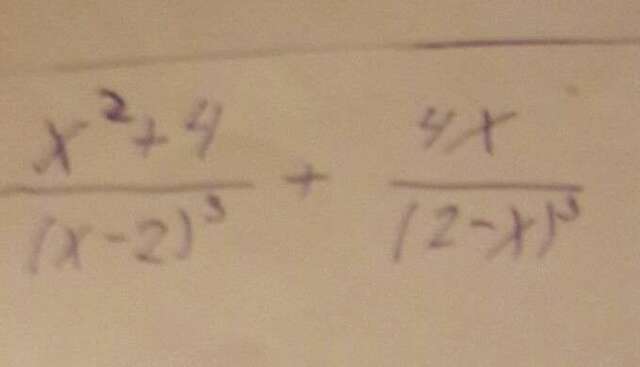 x²+4/(x-2)³ + 4x/(2-x)³